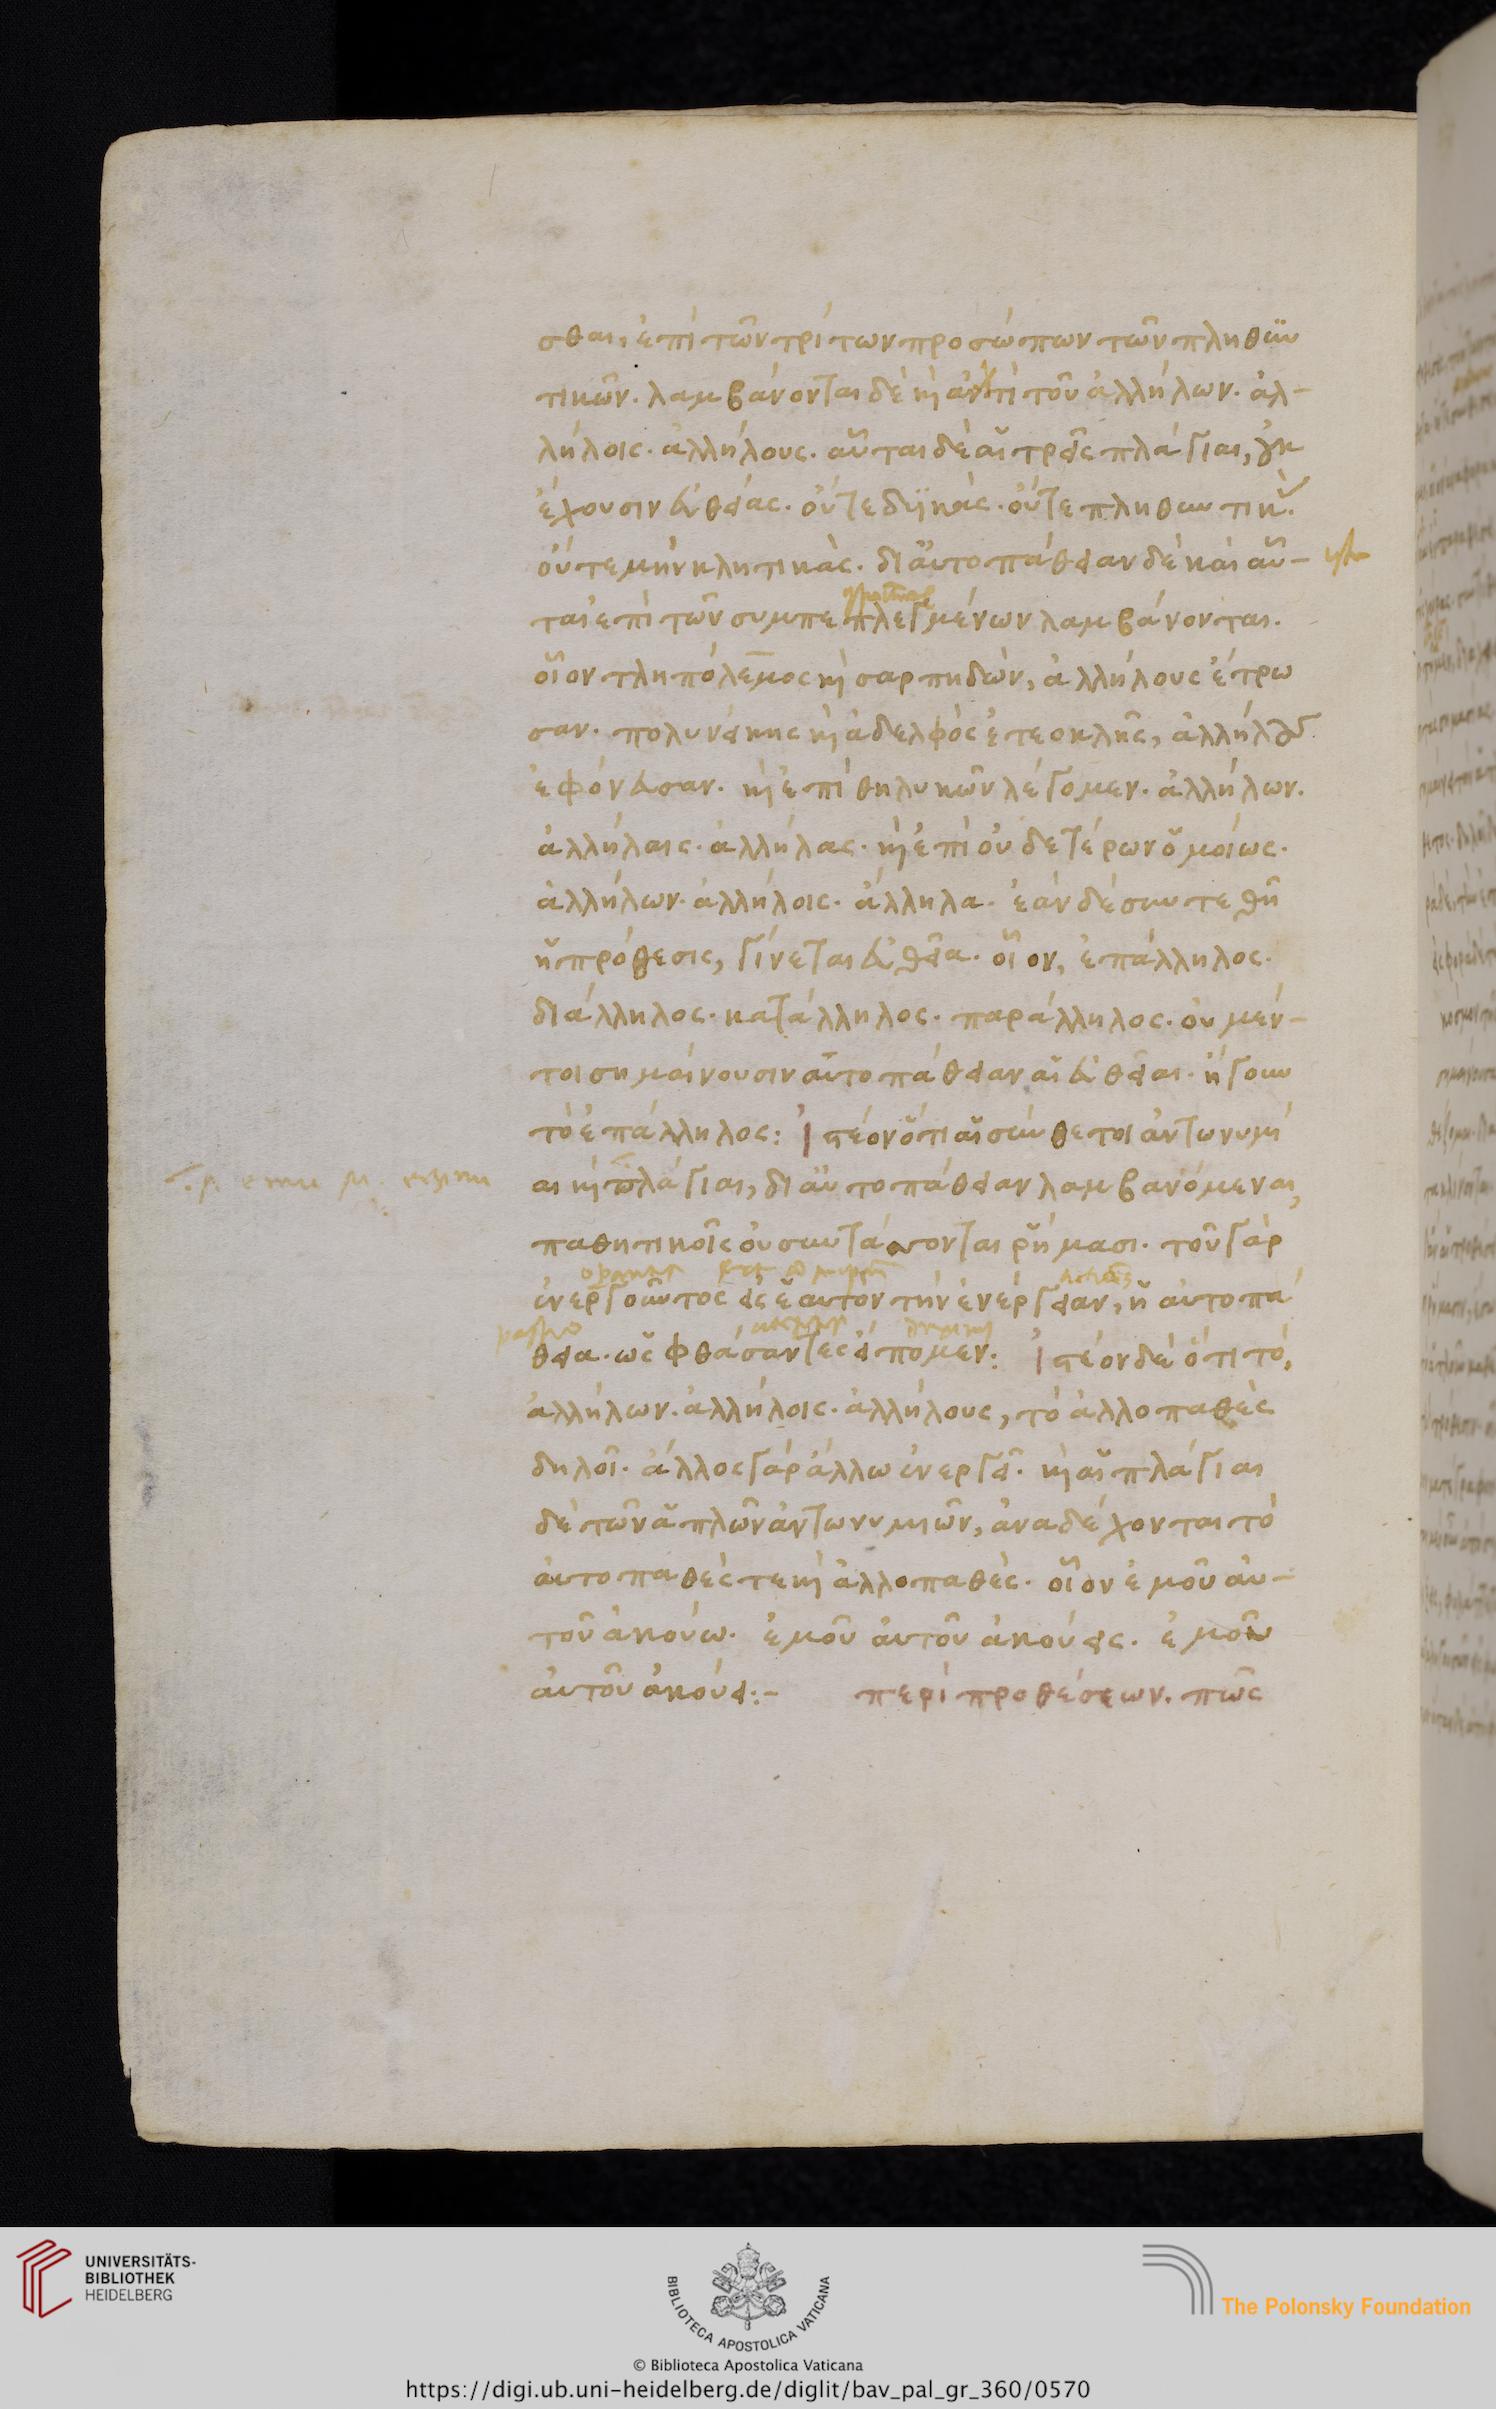 σθαι, ἐπὶ τῶν τρίτων προσώπων τῶν πληθυν
τικῶν. λαμβάνονται δὲ κ̀ ἀντὶ τοῦ ἀλλήλων. ἀλ-
λήλοις. ἀλλήλους. αὗται δὲ αἱ τρεῖς πλάγιαι, οὐκ
ἔχουσιν εὐθείας. οὔτε δυϊκὰς. οὔτε πληθυντικ
οὔτε μὴν κλητικὰς. δι αὐτοπάθειαν δὲ καὶ αὗ-
ται ἐπὶ τῶν συμπεπλεγμένων λαμβάνονται.
οἷον τληπόλεμος κ̀ σαρπηδὼν, ἀλλήλους ἔτρω
σαν. πολυνείκης κ̀ ἀδελφὸς ἐτεοκλῆς, ἀλλήλους
ἐφόνευσαν. κ̀ ἐπὶ θηλυκῶν λέγομεν. ἀλλήλων.
ἀλλήλαις. ἀλλήλας. κ̀ ἐπὶ οὐδετέρων ὁμοίως.
ἀλλήλων. ἀλλήλοις. ἄλληλα. ἐὰν δὲ συντεθῆ
ἡ πρόθεσις, γίνεται εὐθεῖα. οἷον, ἐπάλληλος.
διάλληλος. κατάλληλος. παράλληλος. οὐ μέν-
τοι σημαίνουσιν αὐτοπάθειαν αἱ εὐθεῖαι. ἤγουν
τὸ ἐπάλληλος: Ἰστέον ὅτι αἱ σύνθετοι ἀντωνυμί
αι κ̀ πλάγιαι, δι αὐτοπάθειαν λαμβανόμεναι,
παθητικοῖς οὐ συντάσσονται ῥήμασι. τοῦ γὰρ
ἐνεργοῦντος εἰς ἑαυτὸν τὴν ἐνέργειαν, ἡ αὐτοπά
θεια. ὡς φθάσαντες εἴπομεν: Ἰστέον δὲ ὅτι τὸ,
ἀλλήλων. ἀλλήλοις. ἀλλήλους, τὸ ἀλλοπαθὲς
δηλοῖ. ἄλλος γὰρ ἄλλω ἐνεργεῖ. κ̀ αἱ πλάγιαι
δὲ τῶν ἁπλῶν ἀντωνυμιῶν, ἀναδέχονται τὸ
αὐτοπαθὲς τε κ̀ ἀλλοπαθὲς. οἷον ἐμοῦ αὐ-
τοῦ ἀκούω. ἐμοῦ αὐτοῦ ἀκούεις. ἐμοῦ
αὐτοῦ ἀκούει:- περὶ προθέσεων. πῶς
UNIVERSITÄTS-
BIBLIOTHEK
HEIDELBERG
BIBLIOTECA APOSTOLICA VATICANA
The Polonsky Foundation
© Biblioteca Apostolica Vaticana
https://digi.ub.uni-heidelberg.de/diglit/bav_pal_gr_360/0570